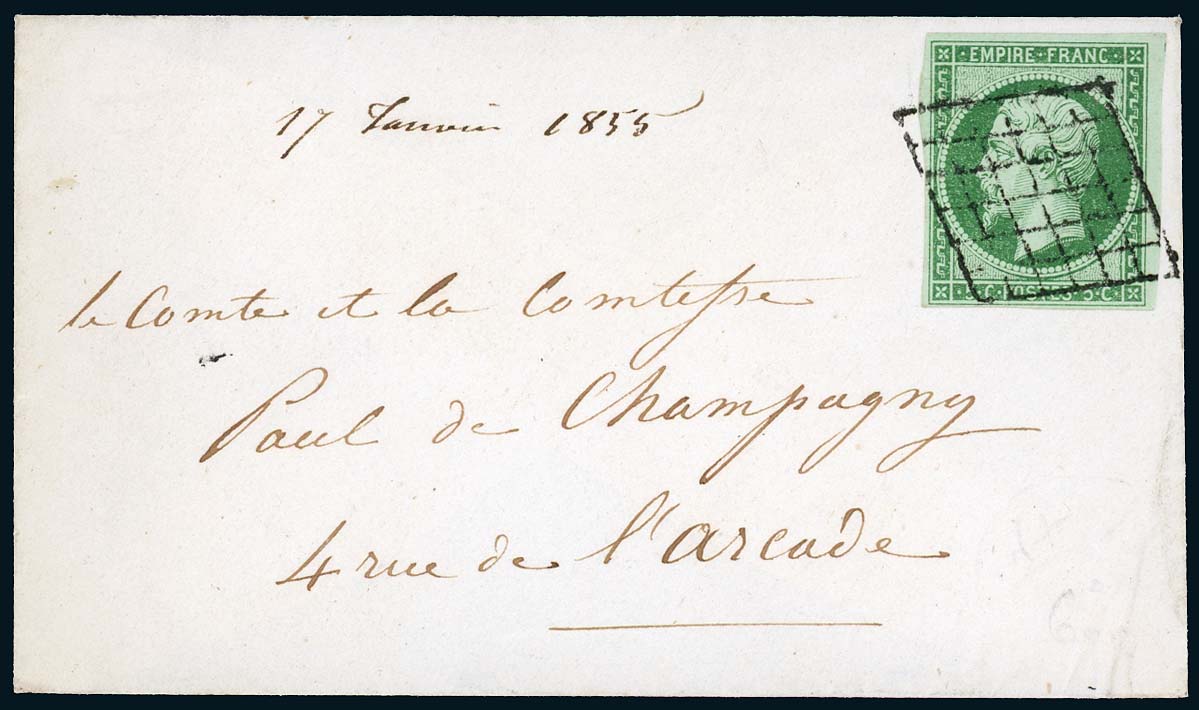 EMPIRE · FRANC ·
17 Janvier 1855
5·C· POSTES ·5·C
le Comte et la Comtesse
Paul de Champagny
4 rue de l'arcade